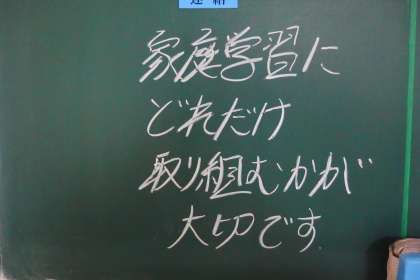 連絡
家庭学習に
どれだけ
取り組むかが
大切です